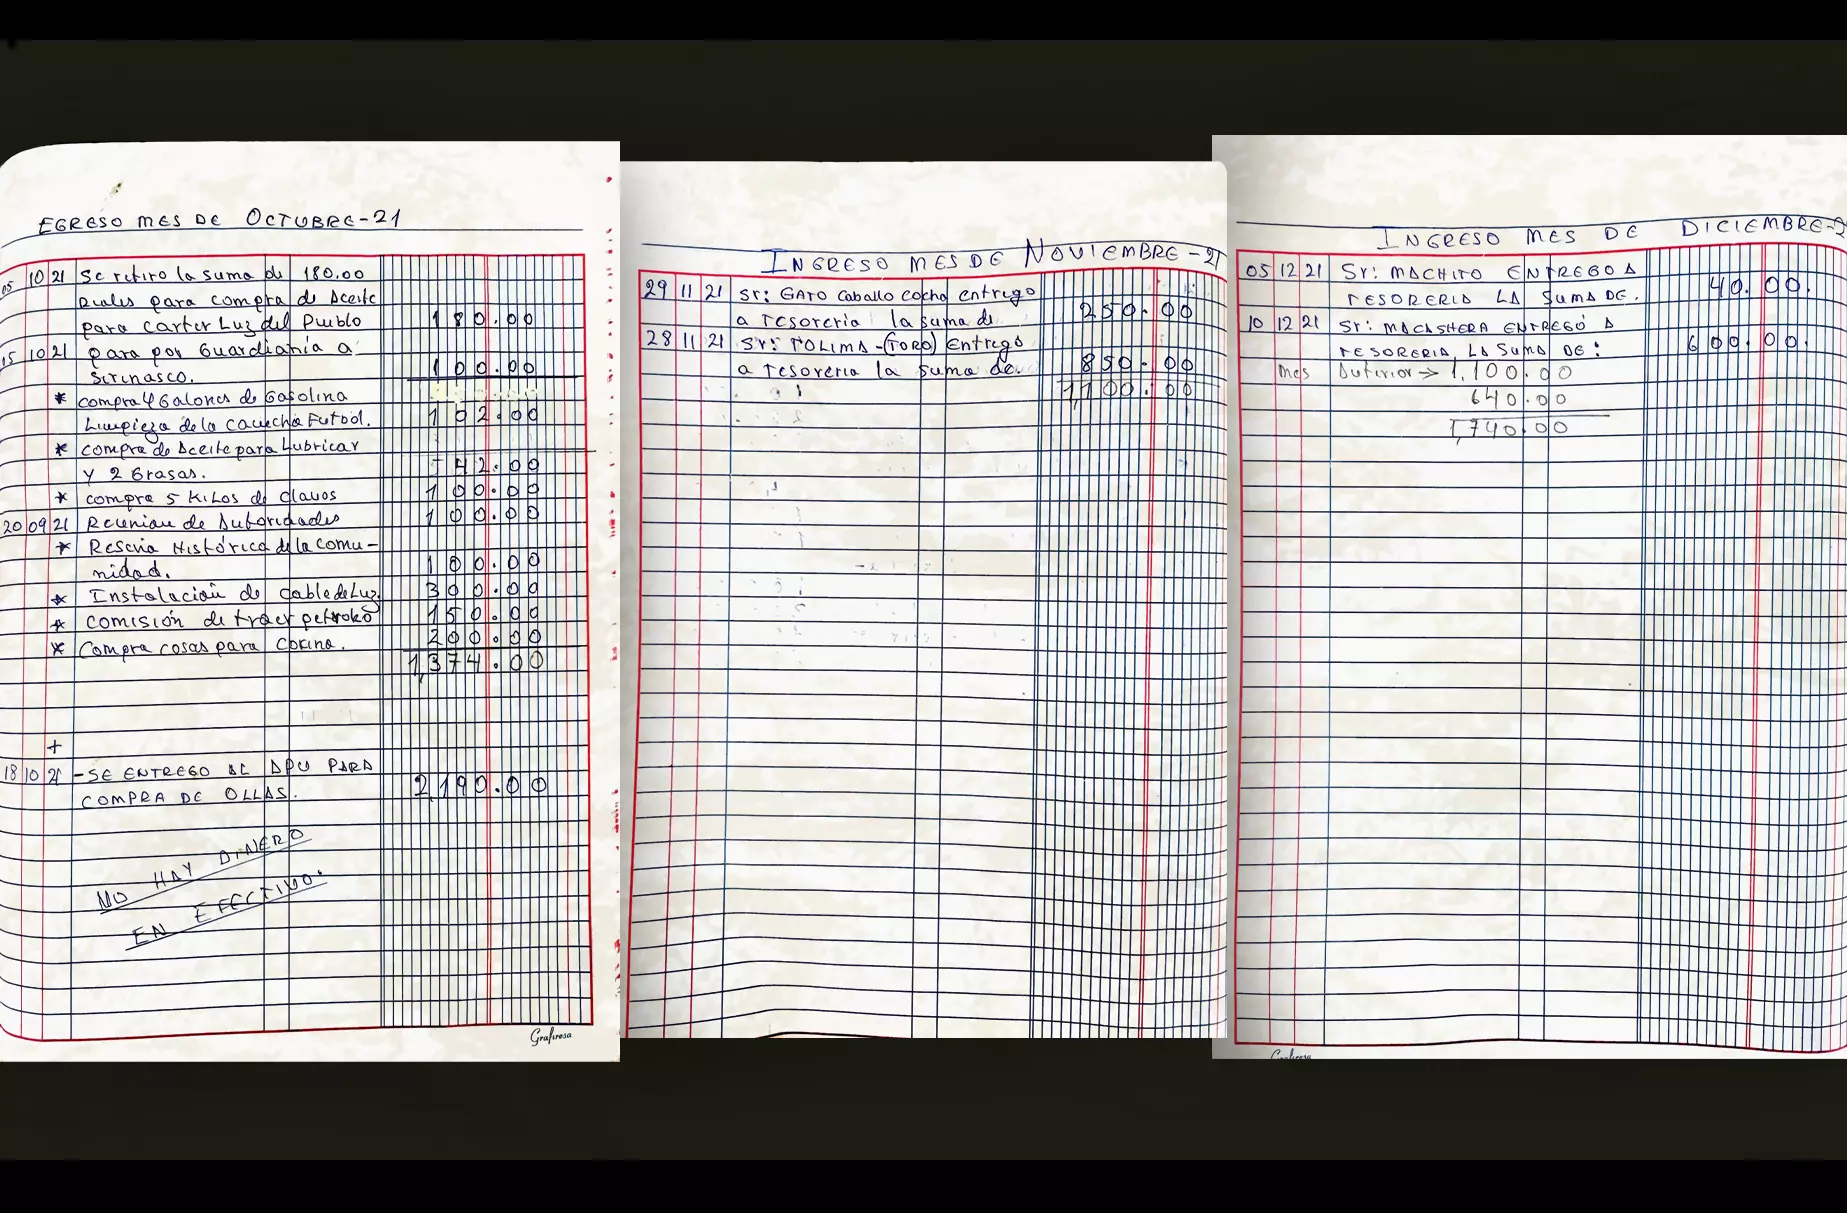 EGRESO MES DE OCTUBRE-21
05 10 21 Se retiro la suma de 180.00
Reales para compra de Aceite
para carter Luz del Pueblo 180.00
15 10 21 para por Guardiania a
Sirinasco. 100.00
* compra 4 Galones de Gasolina
Limpieza de la canecha Futbol. 102.00
* compra de Aceite para Lubricar
y 2 Grasas. 42.00
* compra 5 Kilos de clavos 100.00
20 09 21 Reunian de Autoridades 100.00
* Reseña Histórica de la Comu-
nidad. 100.00
* Instalación de cable de Luz. 300.00
* Comisión de traer 150.00
* Compra cosas para Cocina. 200.00
1,374.00
+
18 10 21 - SE ENTREGO AL APU PARA
COMPRA DE OLLAS. 2,190.00
NO HAY DINERO
EN EFECTIVO.
Grafiresa
INGRESO MES DE NOVIEMBRE-21
29 11 21 Sr: GATO Caballo cocha entrego
a Tesoreria la suma de 250.00
28 11 21 Sr: TOLIMA-(TORO) Entrego
a Tesoreria la suma de. 850.00
1,100.00
INGRESO MES DE DICIEMBRE-2
05 12 21 Sr: MACHITO ENTREGO A
TESORERIA LA SUMA DE. 40.00.
10 12 21 Sr: MACASHERA ENTREGÓ A
TESORERIA, LA SUMA DE: 600.00.
Mes Anterior → 1,100.00
640.00
1,740.00
Grafiresa